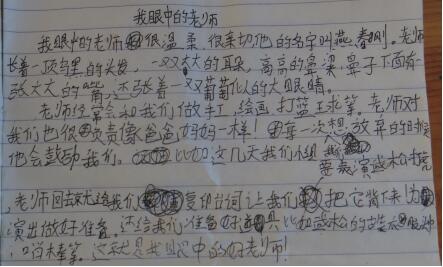 我眼中的老师
我眼中的老师很温柔,很亲切他的名字叫燕春刚。老师
长着一顶乌黑的头发,一双大大的耳朵,高高的鼻梁,鼻子下面有
张大大的嘴,还张着一双葡萄似的大眼睛。
老师经常会和我们做手工,绘画打篮球等。老师对
我们也很负责像爸爸妈妈一样!每一次想放弃的时候
他会鼓励我们。比如这几天我们小组要表演武松打虎
,老师回去就给我们复印台词让我们把它背下来为
演出做好准备,还给我们准备好道具比如武松的
哨棒等。这就是我眼中的好老师!